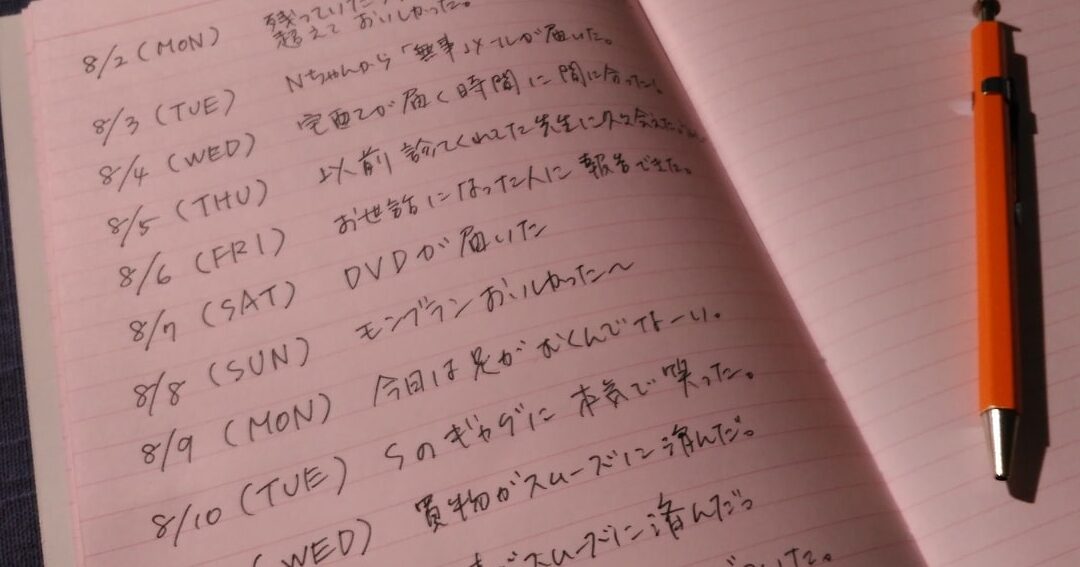 残っていた
8/2 (MON) 超えておいしかった。
8/3 (TUE) Nちゃんから「無事」メールが届いた。
8/4 (WED) 宅配てが届く時間に間に合った!
8/5 (THU) 以前診てくれてた先生に久々会えた
8/6 (FRI) お世話になった人に報告できた。
8/7 (SAT) DVDが届いた
8/8 (SUN) モンブランおいしかった〜
8/9 (MON) 今日は足がむくんでなーい。
8/10 (TUE) Sのギャグに本気で笑った。
(WED) 買物がスムーズに済んだ。
がスムーズに済んだっ
いた。